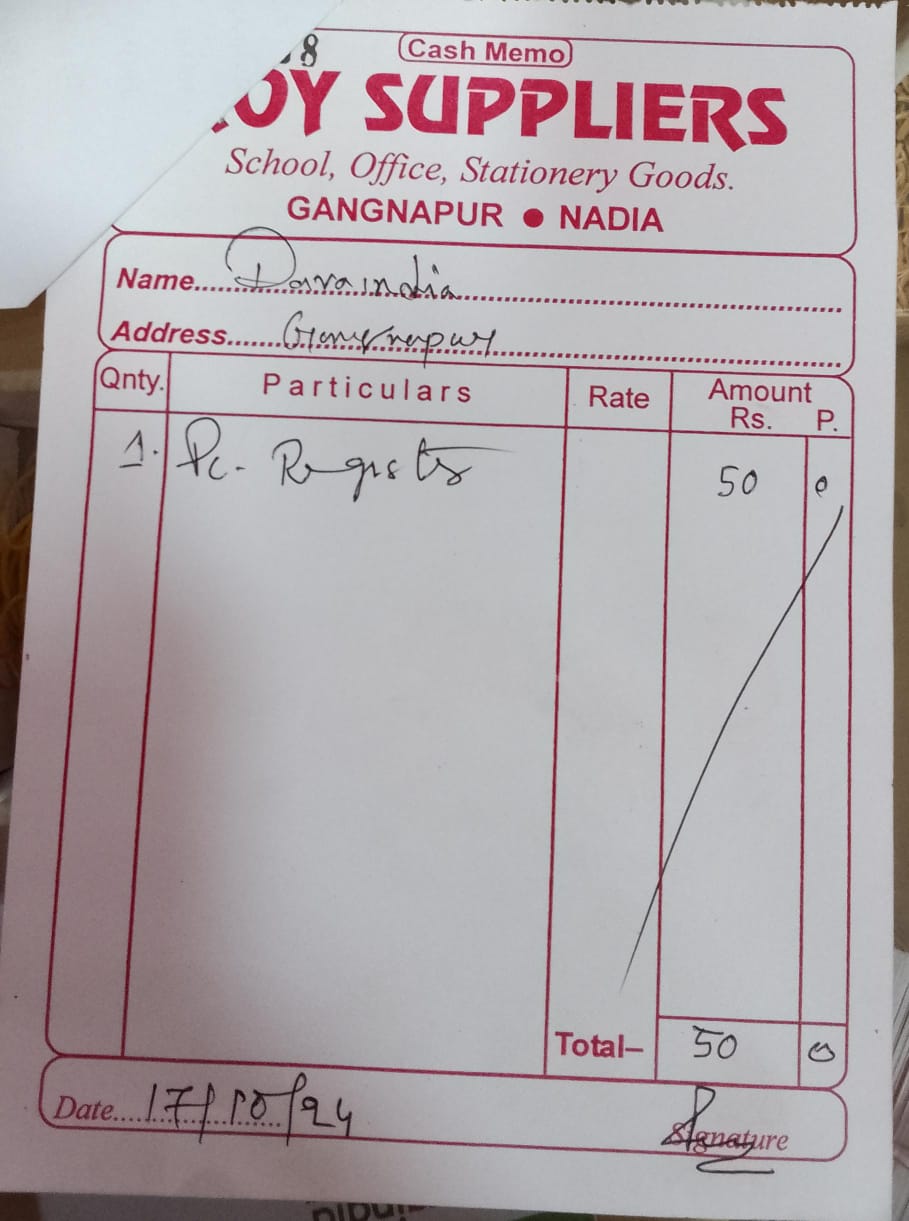 8 Cash Memo
OY SUPPLIERS
School, Office, Stationery Goods.
GANGNAPUR ● NADIA
Name.....Daraindia
Address.......Gangnapur
Qnty. Particulars Rate Amount Rs. P.
1. Pc. Register 50 0
Total– 50 0
Date....17/10/24 Signature